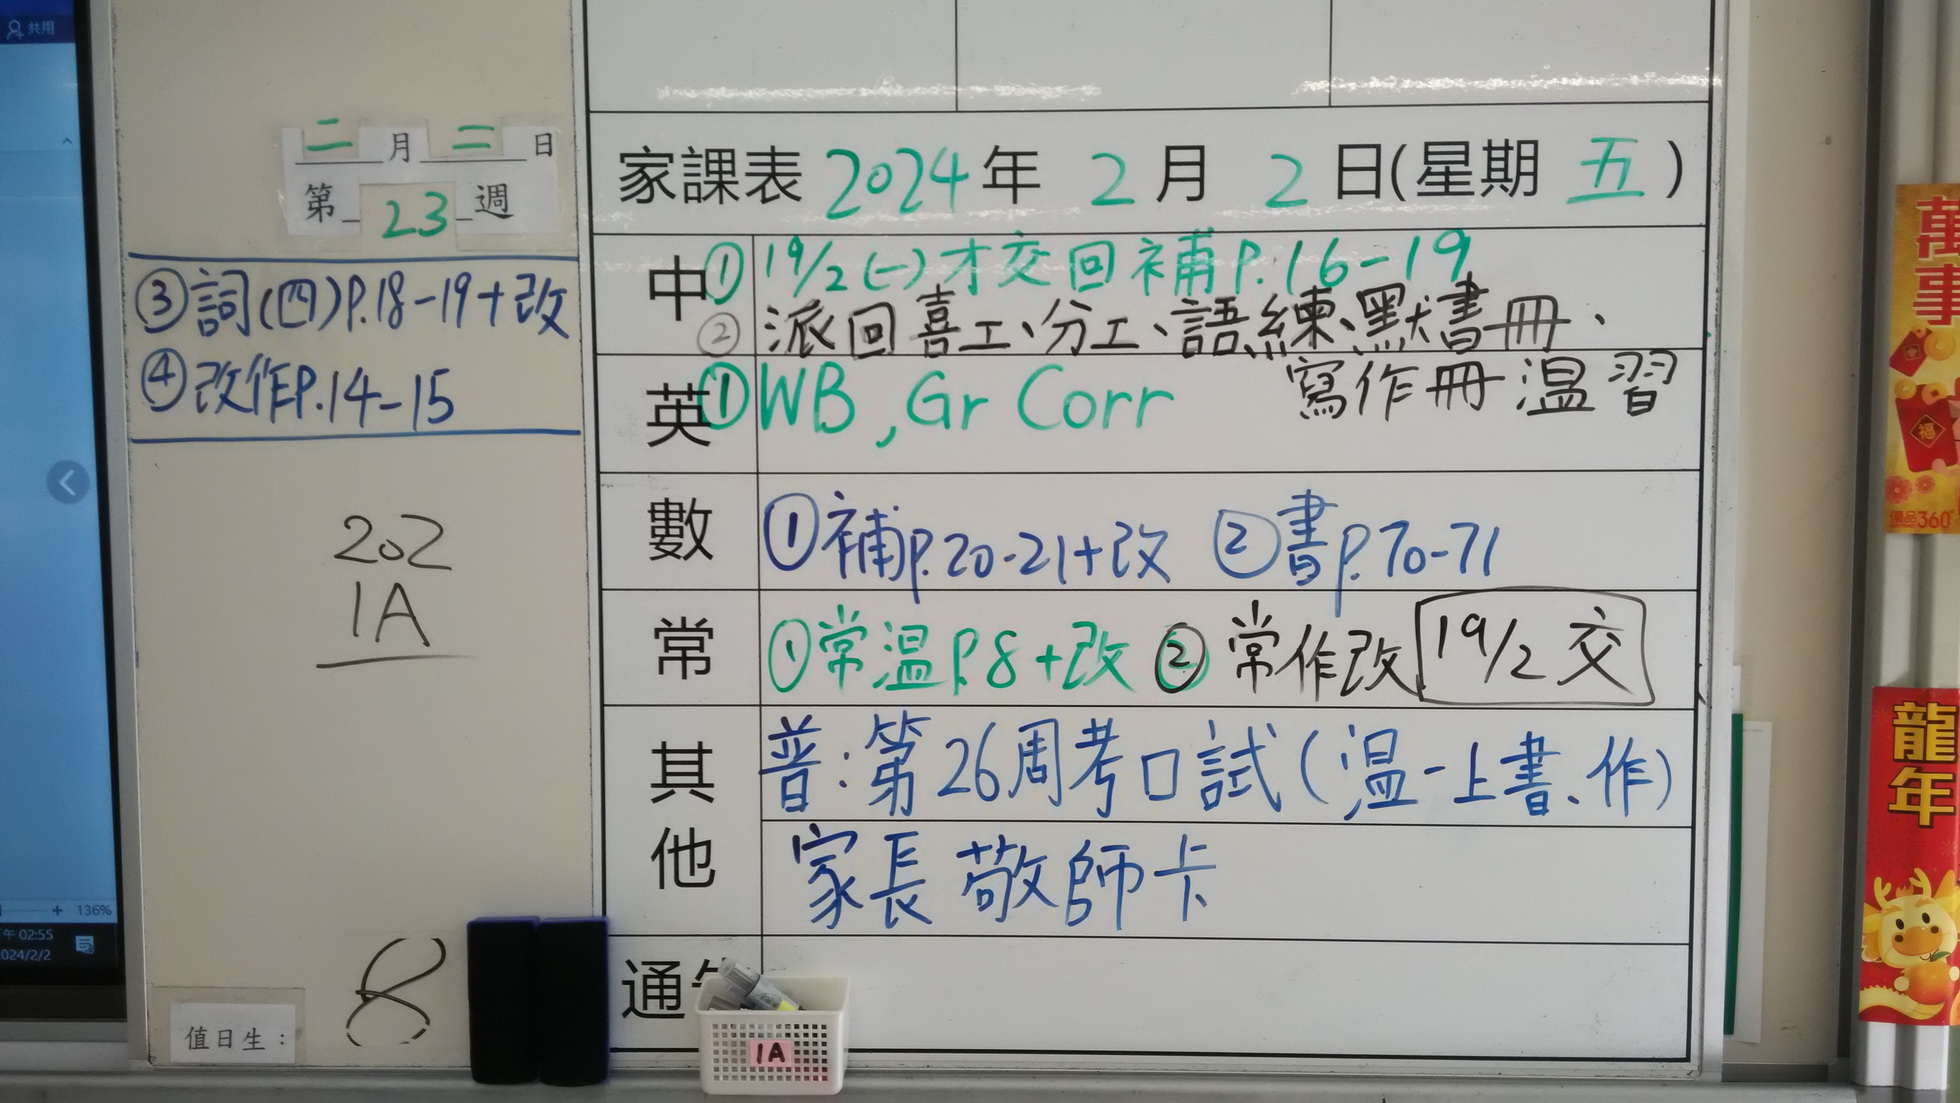 共用
二月二日
第23週
③詞(四)P.18-19+改
④改作P.14-15
202
1A
8
值日生：
136%
午 02:55
024/2/2
家課表 2024年 2月 2日(星期 五)
中 ①19/2(一)才交回補P.16-19
②派回喜工、分工、語練、默書冊、
寫作冊温習
英 ①WB, Gr Corr
數 ①補P.20-21+改 ②書P.70-71
常 ①常温P.8+改 ②常作改 19/2 交
其他 普：第26周考口試(温一上書、作)
家長敬師卡
通
1A
萬事
福
優品360°
龍年